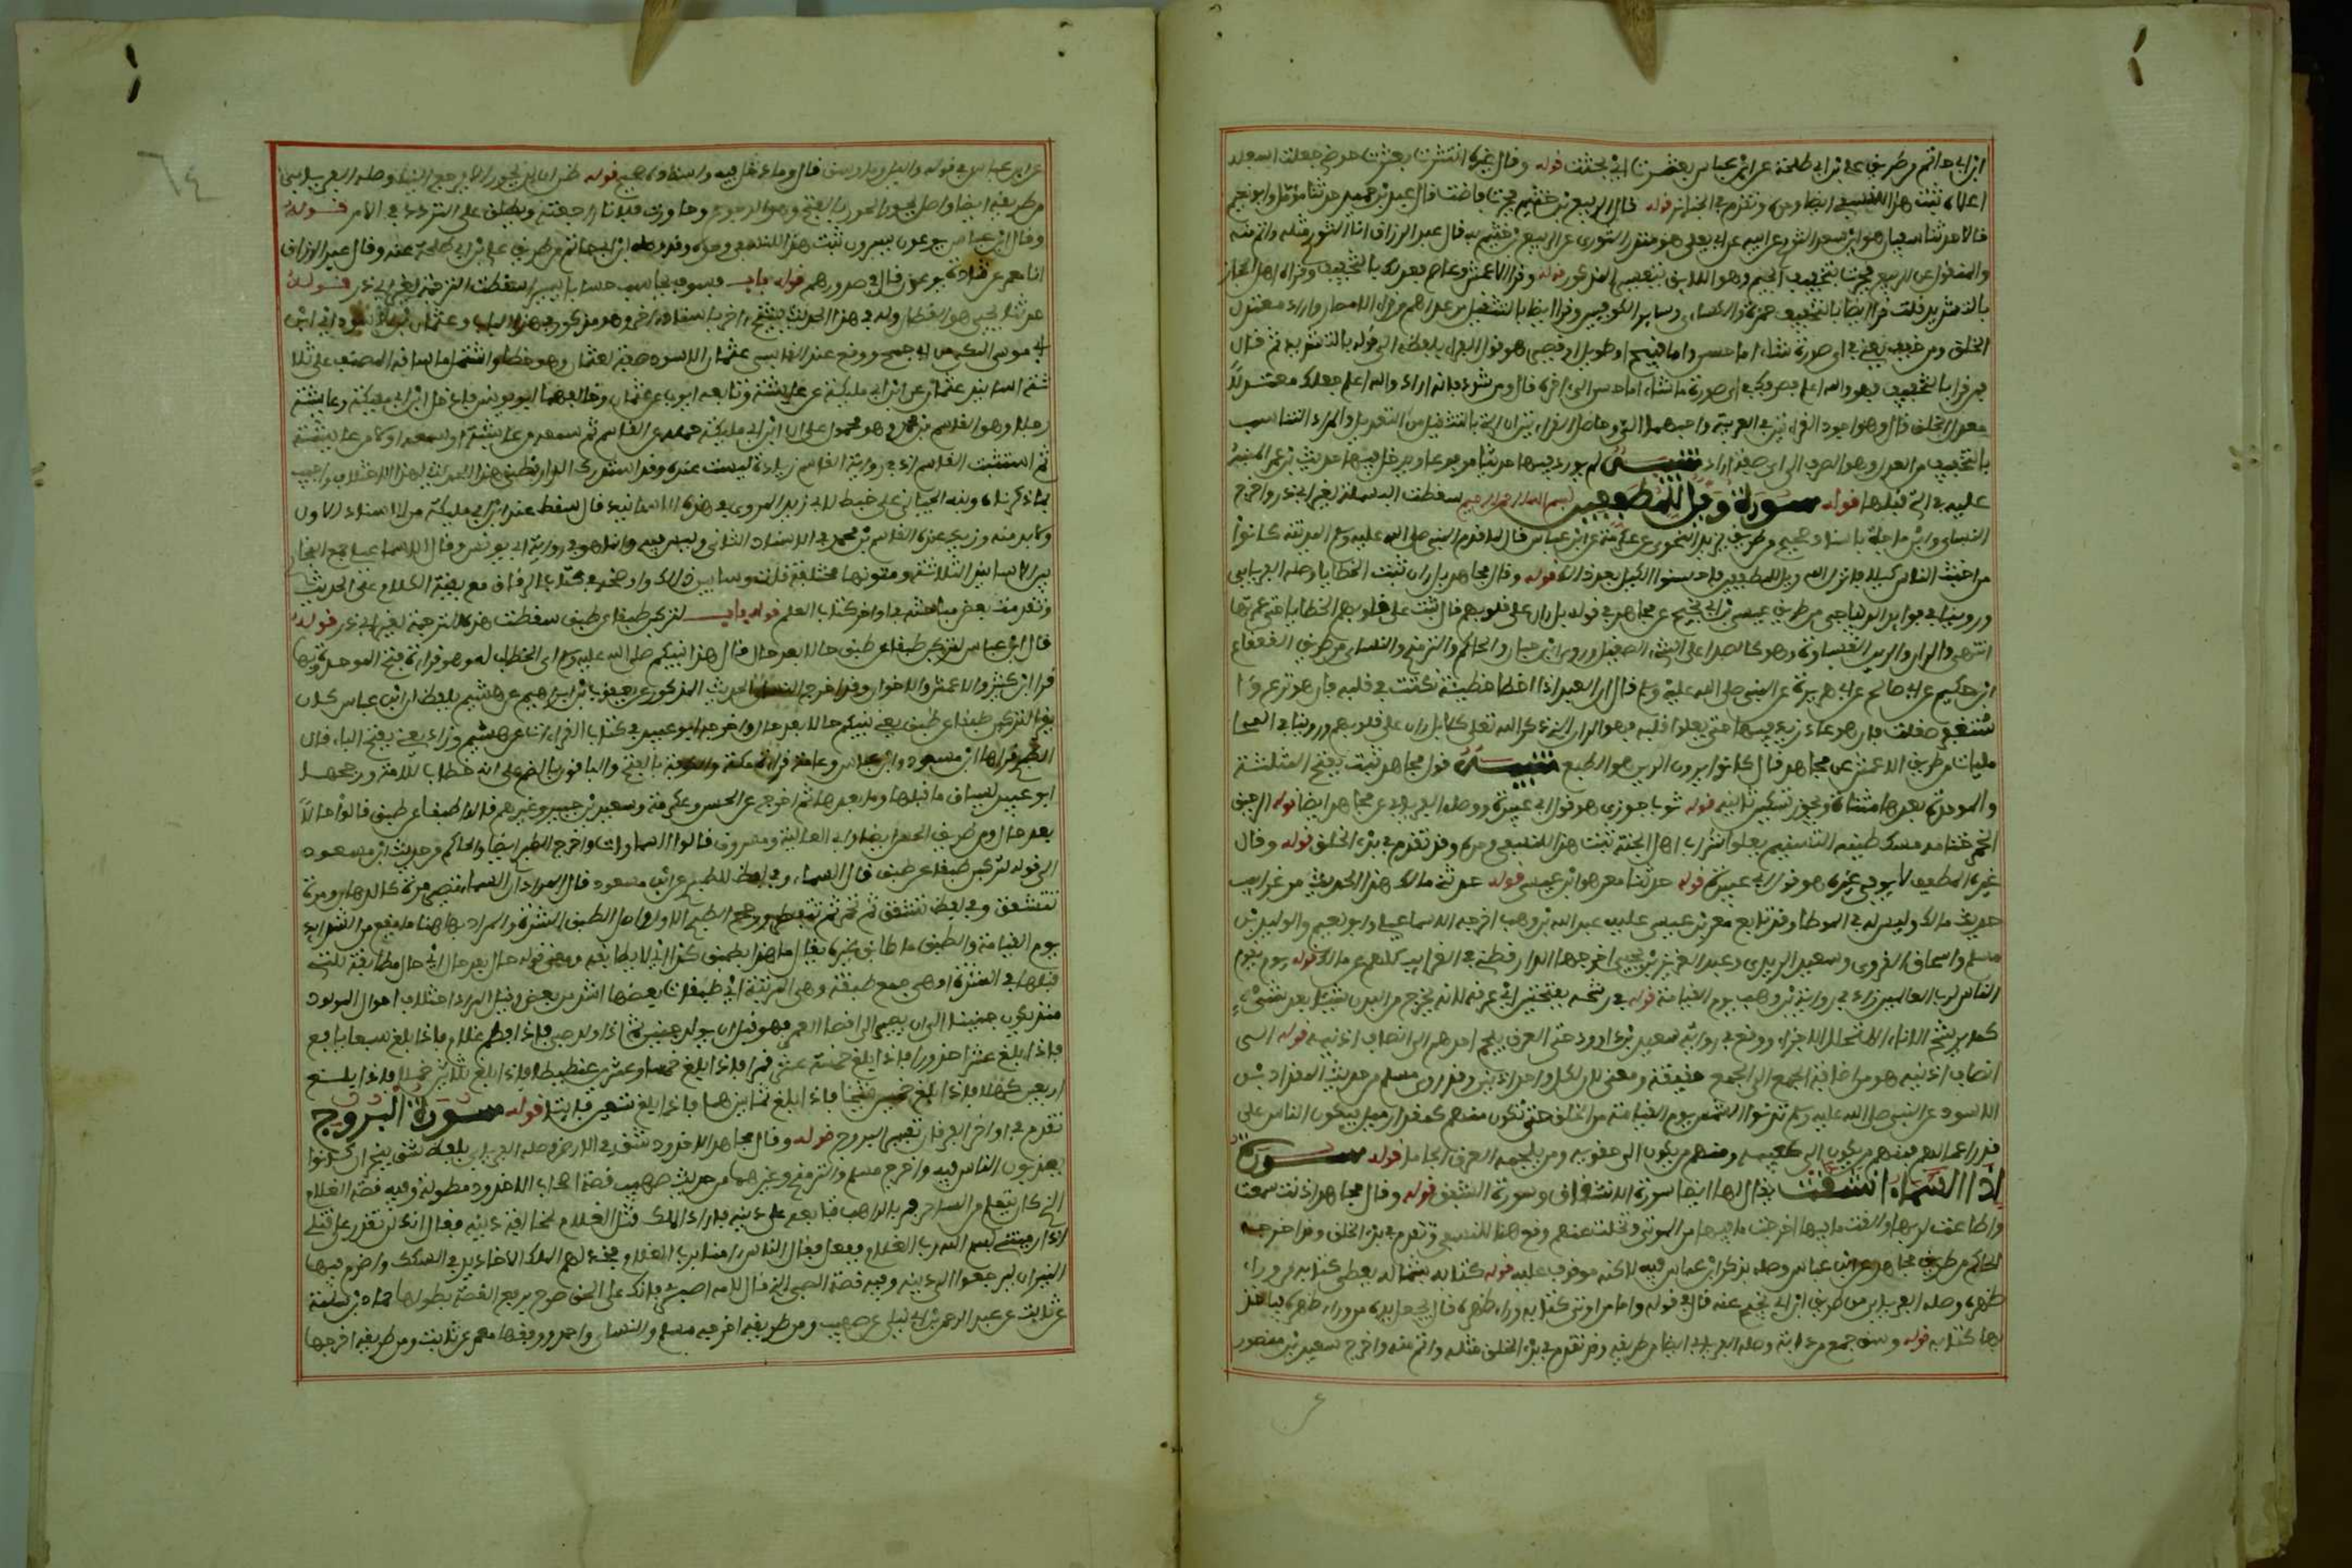 ابن ابي حاتم من طريق علي بن ابي طلحة عن ابن عباس بعثرت اي بحثت قوله وقال غيره انتثرت بعثرت حوضي جعلت اسفله
اعلاه ثبت هذا للنسفي ايضا وحده وتقدم في الجنائز قوله وقال الربيع بن خثيم فجرت فاضت قال عبد بن حميد حدثنا مؤمل وابو نعيم
قالا حدثنا سفيان هو ابن سعيد الثوري عن ابيه عن ابي يعلى هو منذر الثوري عن الربيع بن خثيم به قال عبد الرزاق انا الثوري مثله واتم منه
والمنقول عن الربيع فجرت بتخفيف الجيم وهو اللايق بتفسيره المذكور قوله وقرا الاعمش وعاصم فعدلك بالتخفيف وقراه اهل الحجاز
بالتشديد قلت قرا ايضا بالتخفيف حمزة والكسائي وساير الكوفيين وقرا ايضا بالتثقيل من عداهم من قراء الامصار واراد معتدل
الخلق ومن خفف يعني في اي صورة شاء اما حسن واما قبيح او طويل او قصير هو قول الفراء بلفظه الى قوله بالتشديد ثم قال
فمن قرا بالتخفيف فهو والله اعلم يصرفك في اي صورة ما شاء اما حسن الى اخره قال ومن شدد فانه اراد والله اعلم جعلك معتدلا
معدل الخلق قال وهو اجود القراءتين في العربية واحبهما الي وحاصل القراءتين ان التي بالتثقيل من التعديل والمراد التناسب
بالتخفيف من العدل وهو الصرف الى اي صفة اراد تنبيه لم يورد فيها حديثا مرفوعا ويدخل فيها حديث ابن عمر المنبه
عليه في التي قبلها قوله سورة ويل للمطففين بسم الله الرحمن الرحيم سقطت البسملة لغير ابي ذر واخرج
النسائي وابن ماجه باسناد صحيح من طريق يزيد النحوي عن عكرمة عن ابن عباس قال لما قدم النبي صلى الله عليه وسلم المدينة كانوا
من اخبث الناس كيلا فانزل الله ويل للمطففين فاحسنوا الكيل بعد ذلك قوله وقال مجاهد بل ران ثبت الخطايا وصله الفريابي
وروينا في فوائد الديباجي من طريق عيسى بن ابي نجيح عن مجاهد في قوله بل ران على قلوبهم قال ثبت على قلوبهم الخطايا حتى غمرتها
انتهى والران والرين الغشاوة وهو كالصدا على الشيء الصقيل وروى ابن حبان والحاكم والترمذي والنسائي من طريق القعقاع
ابن حكيم عن ابي صالح عن ابي هريرة عن النبي صلى الله عليه وسلم قال ان العبد اذا اخطا خطيئة نكتت في قلبه فان هو نزع
صقلت فان هو عاد زيد فيها حتى تعلوا قلبه فهو الران الذي ذكر الله تعالى كلا بل ران على قلوبهم وروينا في
من طريق الاعمش عن مجاهد قال كانوا يرون الرين هو الطبع تنبيه قول مجاهد ثبت بفتح المثلثة
والموحدة بعدها مثناة ويجوز تسكين ثانيه قوله ثوب جوزي هو قول ابي عبيدة ووصله الفريابي عن مجاهد ايضا قوله الرحيق
الخمر ختامه مسك طينه التسنيم يعلو شراب اهل الجنة ثبت هذا للنسفي وحده وقد تقدم في بدء الخلق قوله وقال
غيره المطفف لا يوفي غيره هو قول ابي عبيدة قوله حدثنا معن هو ابن عيسى قوله حدثني مالك هذا الحديث من غرايب
حديث مالك وليس له في الموطا وقد تابع معن بن عيسى عليه عبد الله بن وهب اخرجه الاسماعيلي وابو نعيم والوليد بن
مسلم واسحاق الفروي وسعيد الزبيري وعبد العزيز بن يحيى اخرجها الدارقطني في الغرايب كلهم عن مالك قوله يوم يقوم
الناس لرب العالمين زاد في رواية بن وهب يوم القيامة قوله في رشحه بفتحتين اي عرقه لانه يخرج من البدن شيئا بعد شيء
كما يرشح الاناء المتخلل الاجزاء ووقع في رواية سعيد بن داود حتى العرق يلجم احدهم الى انصاف اذنيه قوله الى
انصاف اذنيه هو من اضافة الجمع الى الجمع حقيقة ومعنى لان لكل واحد اذنين وقد روى مسلم من حديث المقداد بن
الاسود عن النبي صلى الله عليه وسلم تدنوا الشمس يوم القيامة من الخلق حتى تكون منهم كمقدار ميل فيكون الناس على
قدر اعمالهم فمنهم من يكون الى كعبيه ومنهم من يكون الى حقويه ومن يلجمه العرق الجاما قوله سورة
اذا السماء انشقت يقال لها ايضا سورة الانشقاق وسورة الشفق قوله وقال مجاهد اذنت سمعت
واطاعت لربها والقت ما فيها اخرجت ما فيها من الموتى وتخلت عنهم وقع هنا للنسفي وتقدم في بدء الخلق وقد اخرجه
الحاكم من طريق مجاهد عن ابن عباس وصله بذكر ابن عباس فيه لكنه موقوف عليه قوله كتابه بشماله يعطى كتابه من وراء
ظهره وصله الفريابي من طريق ابن ابي نجيح عنه قال في قوله واما من اوتي كتابه وراء ظهره قال يجعل يده من وراء ظهره فياخذ
بها كتابه قوله وسق جمع من دابة وصله الفريابي ايضا من طريقه وقد تقدم في بدء الخلق مثله واتم منه واخرج سعيد بن منصور
عن ابن عباس في قوله والليل وما وسق قال وما دخل فيه واسناده صحيح قوله ظن ان لن يحور الا يرجع الينا وصله الفريابي
من طريقه ايضا واصل يحور الحور بالفتح وهو الرجوع وحاورت فلانا راجعته ويطلق على التردد في الامر قوله
وقال ابن عباس يوعون يسرون ثبت هذا للنسفي وحده وقد وصله ابن ابي حاتم من طريق علي بن ابي طلحة عنه وقال عبد الرزاق
انا معمر عن قتادة يوعون قال في صدورهم قوله باب فسوف يحاسب حسابا يسيرا سقطت الترجمة لغير ابي ذر قوله
حدثنا يحيى هو القطان وله في هذا الحديث شيخ اخر باسناد اخر وهو مذكور في هذا الباب وعثمان بن الاسود اي ابن
ابي موسى المكي من بني جمح ووقع عند القابسي عثمان الاسود صفة لعثمان وهو خطا واشتمل ما ساقه المصنف على ثلا
ثة اسانيد عثمان عن ابن ابي مليكة عن عايشة وتابعه ايوب عن عثمان وخالفهما ابو يونس فادخل ابن ابي مليكة وعايشة
رجلا وهو القاسم بن محمد وهو محمول على ان ابن ابي مليكة حمله عن القاسم ثم سمعه من عايشة او سمعه اولا من عايشة
ثم استثبت القاسم اذ في رواية القاسم زيادة ليست عنده وقد استدرك الدارقطني هذا الحديث لهذا الاختلاف واجيب
بما ذكرناه ونبه الجياني على خبط لابي زيد المروزي في هذه الاسانيد قال سقط عنده ابن ابي مليكة من الاسناد الاول
ولا بد منه وزيد عنده القاسم بن محمد في الاسناد الثاني وليس فيه وانما هو في رواية ابي يونس وقال الاسماعيلي جمع البخاري
بين الاسانيد الثلاثة ومتونها مختلفة قلت وسابين ذلك واوضحه في كتاب الرقاق مع بقية الكلام على الحديث
وتقدمت بعض مباحثه في اواخر كتاب العلم قوله باب لتركبن طبقا عن طبق سقطت هذه الترجمة لغير ابي ذر قوله
قال ابن عباس لتركبن طبقا عن طبق حالا بعد حال قال هذا نبيكم صلى الله عليه وسلم اي الخطاب له وهو قراءة فتح الموحدة وبها
قرا ابن كثير والاعمش والاخوان وقد اخرج الحديث المذكور عن يعقوب بن ابراهيم عن هشيم بلفظ ان ابن عباس كان
يقرا لتركبن طبقا عن طبق يعني نبيكم حالا بعد حال واخرجه ابو عبيد في كتاب القراءات عن هشيم وزاد يعني بفتح الباء قال
الطبري قراها ابن مسعود وابن عباس وعامة قراء مكة والكوفة بالفتح والباقون بالضم على انه خطاب للامة ورجحها
ابو عبيد لسياق ما قبلها وما بعدها ثم اخرج عن الحسن وعكرمة وسعيد بن جبير وغيرهم قالوا طبقا عن طبق قالوا حالا
بعد حال ومن طريق الحسن ايضا وابي العالية ومسروق قالوا السماوات واخرج الطبري ايضا والحاكم من حديث ابن مسعود
الى قوله لتركبن طبقا عن طبق قال السماء وفي لفظ للطبري عن ابن مسعود قال المراد ان السماء تصير مرة كالدهان ومرة
تتشقق وفي لفظ تنشق ثم تحمر ثم تنفطر ورجح الطبري الاول واصل الطبق الشدة والمراد بها ههنا ما يقع من الشدايد
يوم القيامة والطبق ما طابق غيره يقال ما هذا بطبق كذا اي لا يطابقه ومعنى قوله حالا بعد حال اي حال مطابقة للتي
قبلها في الشدة او هي جمع طبقة وهي المرتبة اي طبقات بعضها اشد من بعض وقيل المراد اختلاف احوال المولود
منذ يكون جنينا الى ان يصير الى اقصى العمر فهو قبل ان يولد جنين ثم اذا ولد صبي فاذا افطم غلام فاذا بلغ سبعا يافع
فاذا بلغ عشرا حزور فاذا بلغ خمسة عشر قمد فاذا بلغ خمسا وعشرين عنطنط فاذا بلغ ثلاثين صمل فاذا بلغ
اربعين كهل فاذا بلغ خمسين شيخ فاذا بلغ ثمانين هم فاذا بلغ تسعين فان قوله سورة البروج
تقدم في اواخر الفرقان تفسير البروج قوله وقال مجاهد الاخدود شق في الارض وصله الفريابي بلفظ شق بنجران كانوا
يعذبون الناس فيه واخرج مسلم والترمذي وغيرهما من حديث صهيب قصة اصحاب الاخدود مطولة وفيه قصة الغلام
الذي كان يتعلم من الساحر فمر بالراهب فتابعه على دينه فاراد الملك قتل الغلام لمخالفة دينه فقال انك لن تقدر على قتلي
اذا رميتني بسم الله رب الغلام ففعل فقال الناس امنا برب الغلام فخد لهم الملك الاخاديد في السكك واضرم فيها
النيران ليرجعوا الى دينه وفيه قصة الصبي الذي قال لامه اصبري فانك على الحق صرح برفع القصة بطولها حماد بن سلمة
عن ثابت عن عبد الرحمن بن ابي ليلى عن صهيب ومن طريقه اخرجه مسلم والنسائي واحمد ووقفها معمر عن ثابت ومن طريقه اخرجها